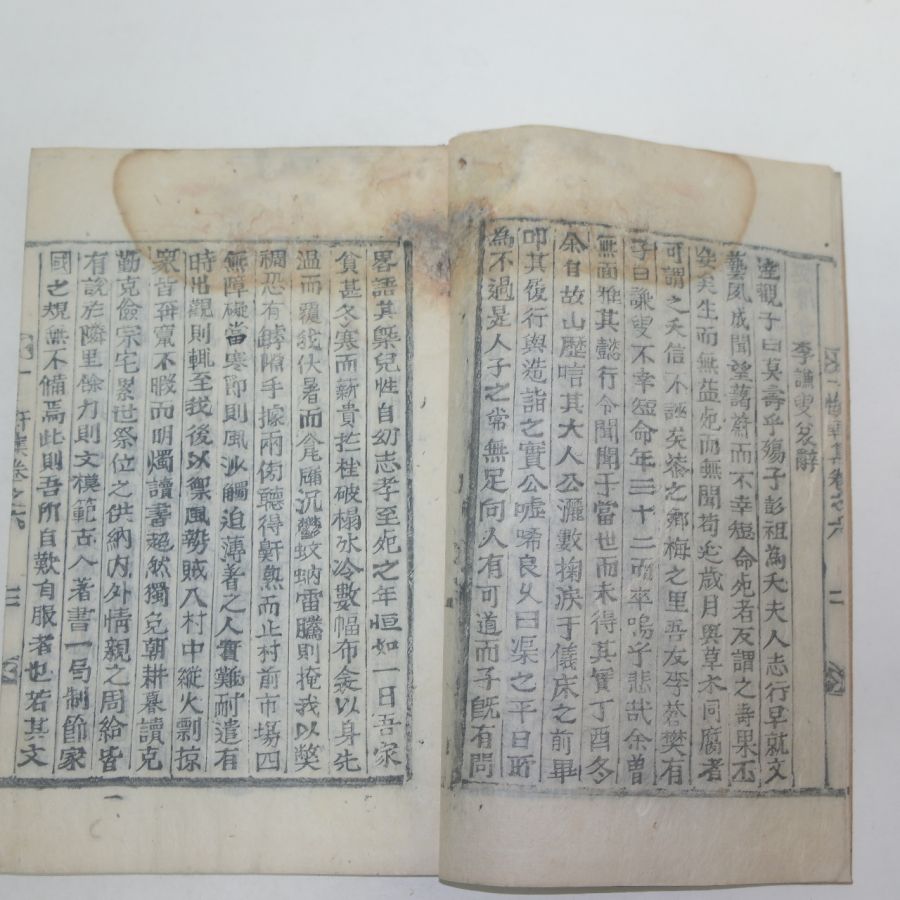 李謙叟哀辭
達觀子曰莫壽乎殤子彭祖為夭夫人志行早就文
藝夙成聞望藹蔚而不幸短命死者友謂之壽果不
妄矣生而無益死而無聞苟延歲月與草木同腐者
可謂之夭信不誣矣漆之鄕梅之里吾友李苔樊有
子曰謙叟不幸短命年三十二而卒嗚乎悲哉余曾
無面雅其懿行令聞聞于當世而未得其實丁酉冬
余自故山歷唁其大人公灑數掬淚于儀床之前畢
叩其復行與造詣之實公噓唏良久曰渠之平日所
為不過是人子之常無足向人有可道而子旣有問
畧語其槩兒性自幼志孝至死之年恒如一日吾家
貧甚冬寒而薪貴拦桂破榻氷冷數幅布衾以身先
温而覆我伏暑而龛牖沉鬱蚊蚋雷騰則掩我以獘
裯恐有罅隙手據兩傍聽得鼾熟而止村前市塲四
無障礙當寒節則風沙觸迫薄著之人實難耐遣有
時出觀則輒至我後以禦風勢賊入村中縱火剽掠
衆皆奔竄不暇而明燭讀書超然獨免朝耕暮讀克
勤克儉宗宅累世祭位之供納内外情親之周給皆
有設於隣里儉力則文模範古人著書一局制節家
國之規無不備焉此則吾所自歎自服者也若其文